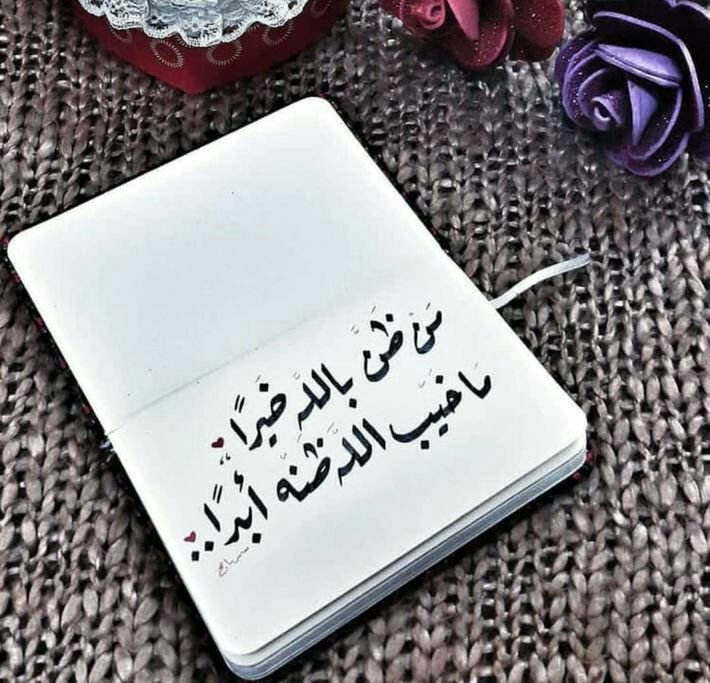 مَنْ ظَنَّ بِاللَّهِ خَيْرًا،،
مَا خَيَّبَ اللَّهُ ظَنَّهُ أَبَدًا..